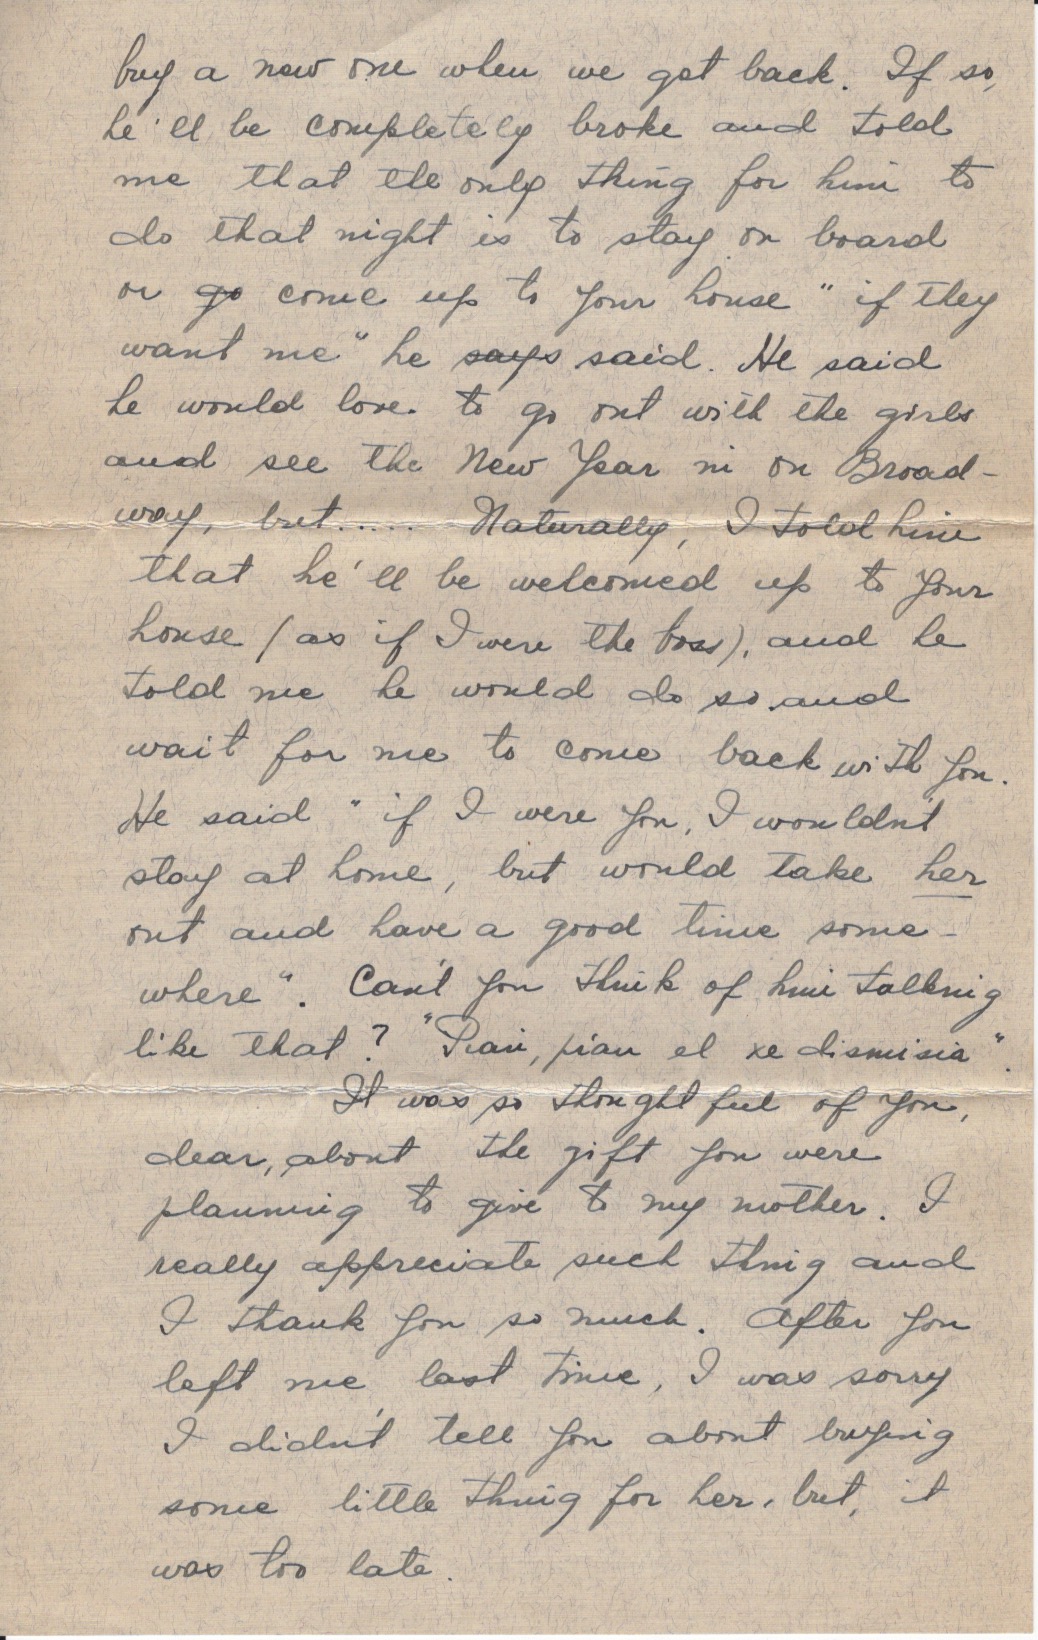 buy a new one when we get back. If so,
he'll be completely broke and told
me that the only thing for him to
do that night is to stay on board
or go come up to your house "if they
want me" he says said. He said
he would love to go out with the girls
and see the New Year in on Broad-
way, but..... Naturally, I told him
that he'll be welcomed up to your
house (as if I were the boss), and he
told me he would do so and
wait for me to come back with you.
He said "if I were you, I wouldn't
stay at home, but would take her
out and have a good time some-
where". Can't you think of him talking
like that? "Pian, pian el xe dismisia".
It was so thoughtful of you,
dear, about the gift you were
planning to give to my mother. I
really appreciate such thing and
I thank you so much. After you
left me last time, I was sorry
I didn't tell you about buying
some little thing for her, but, it
was too late.